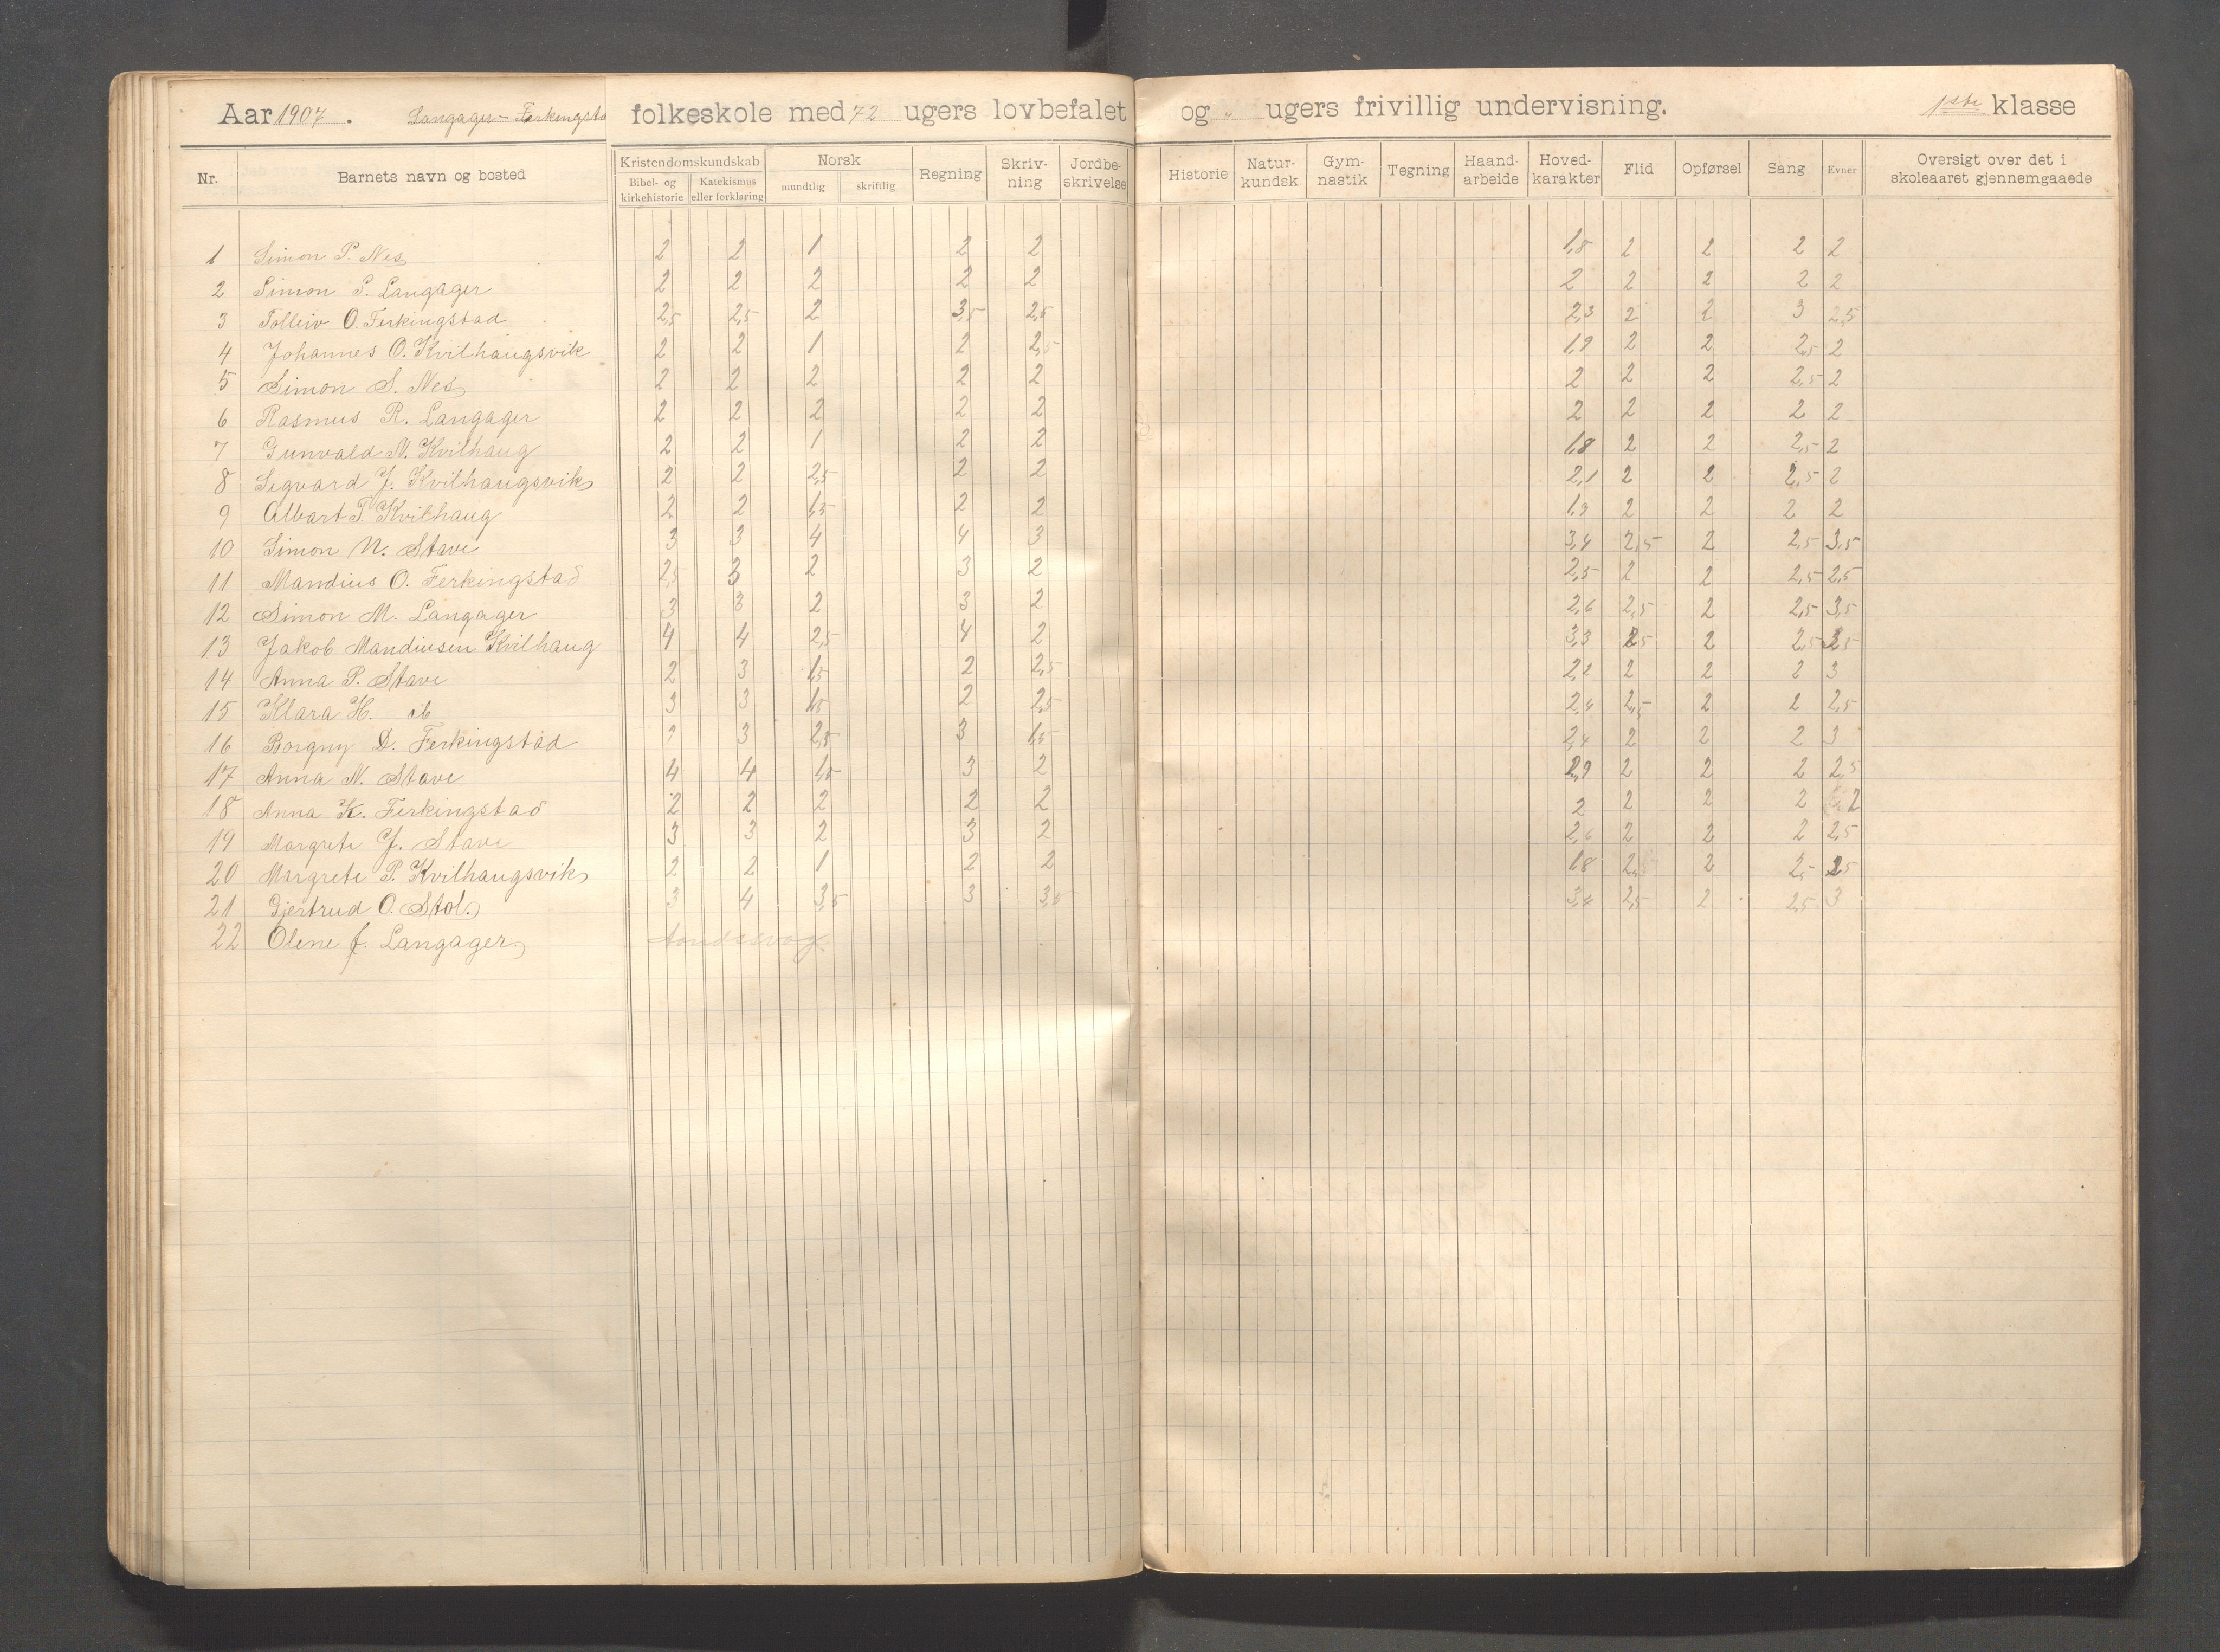 Aar 1907. Langager-Ferkingsta folkeskole med 72 ugers lovbefalet og " ugers frivillig undervisning. 1ste klasse
Nr. Barnets navn og bosted Kristendomskundskab Bibel- og kirkehistorie Katekismus eller forklaring Norsk mundtlig skriftlig Regning Skriv-ning Jordbe-skrivelse Historie Natur-kundsk Gym-nastik Tegning Haand-arbeide Hoved-karakter Flid Opførsel Sang Evner Oversigt over det i skoleaaret gjennemgaaede
1 Simon P. Nes 2 2 1 2 2 1,8 2 2 2 2
2 Simon S. Langager 2 2 2 2 2 2 2 2 2 2
3 Tolleiv O. Ferkingstad 2,5 2,5 2 3,5 2,5 2,3 2 2 3 2,5
4 Johannes O. Kvilhaugsvik 2 2 1 2 2,5 1,9 2 2 2,5 2
5 Simon S. Nes 2 2 2 2 2 2 2 2 2,5 2
6 Rasmus R. Langager 2 2 2 2 2 2 2 2 2 2
7 Gunvald N. Kvilhaug 2 2 1 2 2 1,8 2 2 2,5 2
8 Sigvard J. Kvilhaugsvik 2 2 2,5 2 2 2,1 2 2 2,5 2
9 Albart T. Kvilhaug 2 2 1,5 2 2 1,9 2 2 2 2
10 Simon N. Stave 3 3 4 4 3 3,4 2,5 2 2,5 3,5
11 Mandius O. Ferkingstad 2,5 3 2 3 2 2,5 2 2 2,5 2,5
12 Simon M. Langager 3 3 2 3 2 2,6 2,5 2 2,5 3,5
13 Jakob Mandiusen Kvilhaug 4 4 2,5 4 2 3,3 2,5 2 2,5 3,5
14 Anna P. Stave 2 3 1,5 2 2,5 2,2 2 2 2 3
15 Klara H. ib 3 3 1,5 2 2,5 2,4 2,5 2 2 2,5
16 Borgny D. Ferkingstad 3 2,5 3 1,5 2,4 2 2 2 3
17 Anna N. Stave 4 4 1,5 3 2 2,9 2 2 2 2,5
18 Anna K. Ferkingstad 2 2 2 2 2 2 2 2 2 2
19 Margrete J. Stave 3 3 2 3 2 2,6 2 2 2 2,5
20 Margrete P. Kvilhaugsvik 2 2 1 2 2 1,8 2,5 2 2,5 2,5
21 Gjertrud O. Stol. 3 4 3,5 3 3,5 3,4 2,5 2 2,5 3
22 Olene J. Langager. Aandssvag